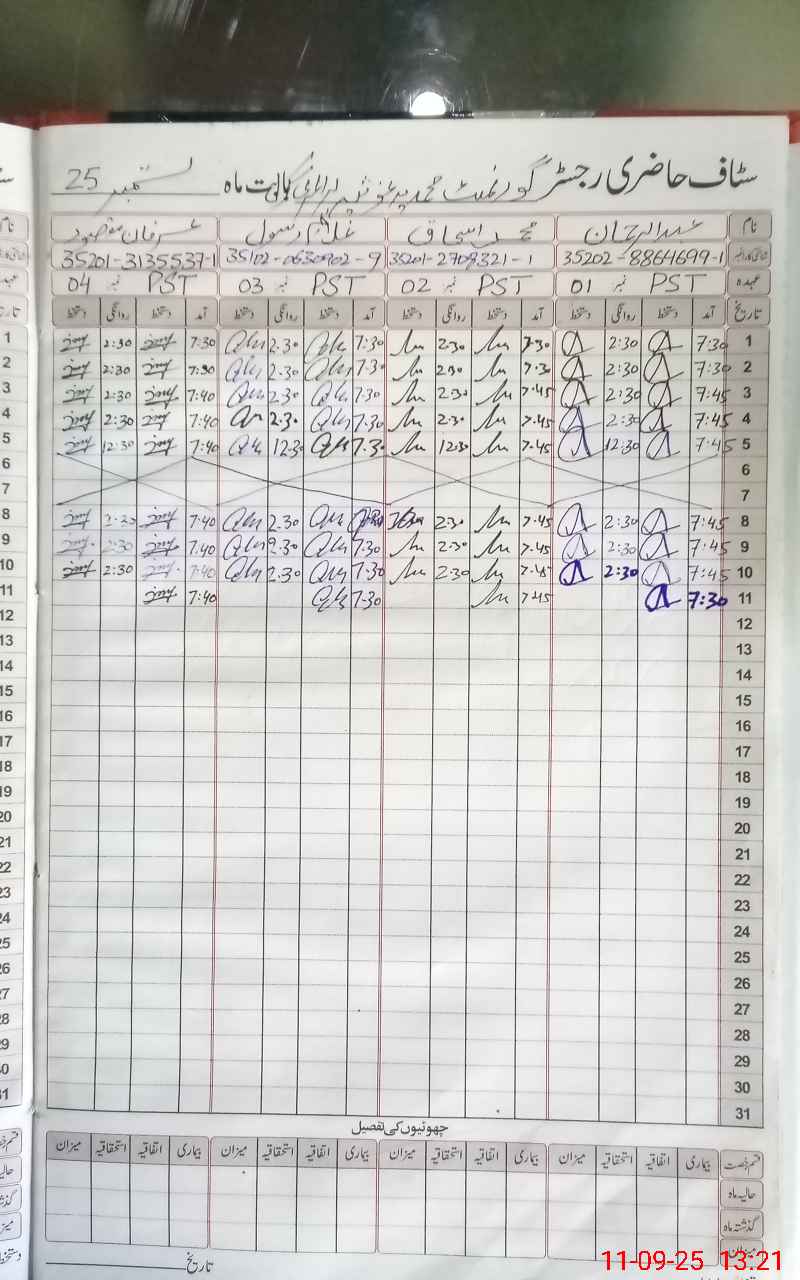 سٹاف حاضری رجسٹر گورنمنٹ محمدیہ غوثیہ پرائمری بابت ماہ ستمبر 25
نام عبدالرحمان محمد اسحاق غلام رسول عرفان مقصود
35202-8864699-1 35201-2709321-1 35102-0630902-9 35201-3135537-1
عہدہ PST نمبر 01 PST نمبر 02 PST نمبر 03 PST نمبر 04
تاریخ آمد دستخط روانگی دستخط آمد دستخط روانگی دستخط آمد دستخط روانگی دستخط آمد دستخط روانگی دستخط
1 7:30 2:30 7.30 2.30 7:30 2.30 7:30 2:30 1
2 7:30 2:30 7.30 2.30 7.30 2.30 7:30 2:30 2
3 7:45 2:30 7.45 2.30 7.30 2.30 7:40 2:30 3
4 7:45 2:30 7.45 2.30 7.30 2.30 7:40 2:30 4
5 7:45 12:30 7.45 12.30 7.30 12.30 7:40 12:30 5
6 6
7 7
8 7:45 2:30 7.45 2.30 2.30 7:40 2:30 8
9 7:45 2:30 7.45 2.30 7.30 2.30 7:40 2:30 9
10 7:45 2:30 7.45 2.30 7.30 2.30 7:40 2:30 10
11 7:30 7.45 7.30 7:40 11
12 12
13 13
14 14
15 15
16 16
17 17
18 18
19 19
20 20
21 21
22 22
23 23
24 24
25 25
26 26
27 27
28 28
29 29
30 30
31 31
چھوٹیوں کی تفصیل
قسم رخصت بیماری اتفاقیہ استحقاقیہ میزان بیماری اتفاقیہ استحقاقیہ میزان بیماری اتفاقیہ استحقاقیہ میزان بیماری اتفاقیہ استحقاقیہ میزان
حالیہ ماہ
گذشتہ ماہ
میزان
تاریخ
11-09-25 13:21